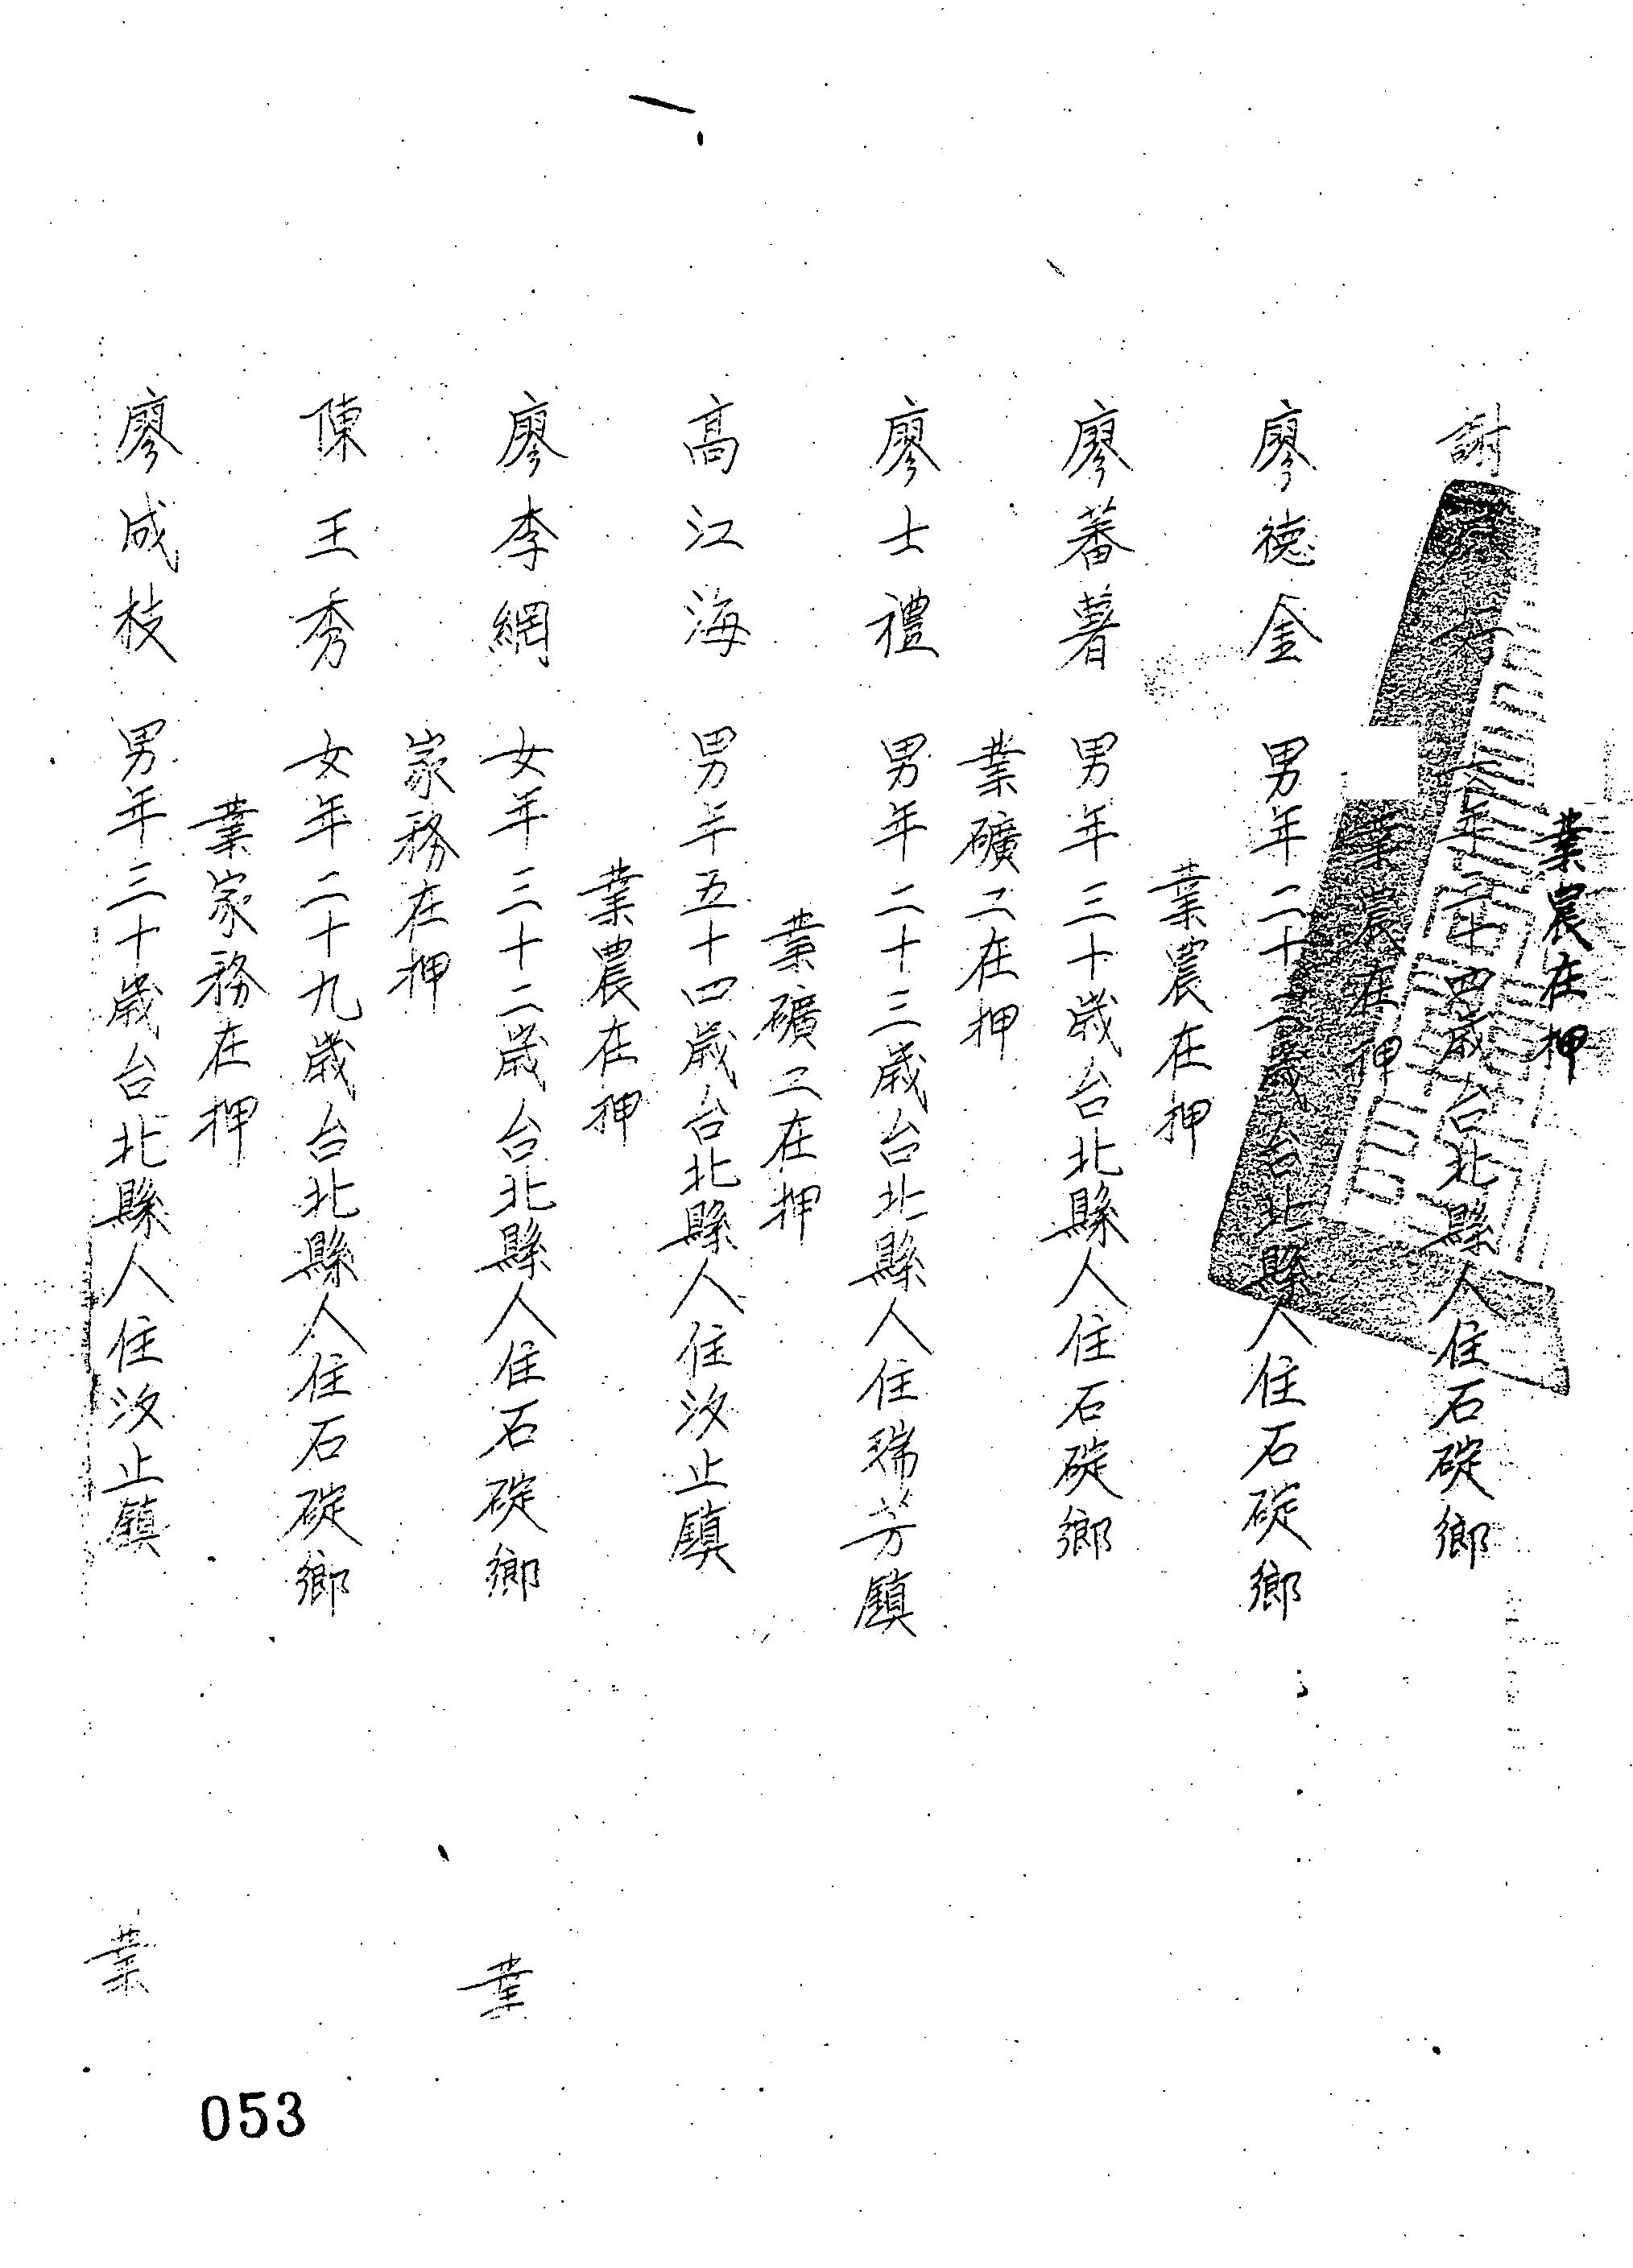 業農在押
謝 年二十四歲台北縣人住石碇鄉
業農在押
廖德金 男年二十 歲台北縣人住石碇鄉
業農在押
廖蕃薯 男年三十歲台北縣人住石碇鄉
業礦工在押
廖士禮 男年二十三歲台北縣人住瑞芳鎮
業礦工在押
高江海 男年五十四歲台北縣人住汐止鎮
業農在押
廖李網 女年三十二歲台北縣人住石碇鄉 業
家務在押
陳王秀 女年二十九歲台北縣人住石碇鄉
業家務在押
廖成枝 男年三十歲台北縣人住汐止鎮 業
053